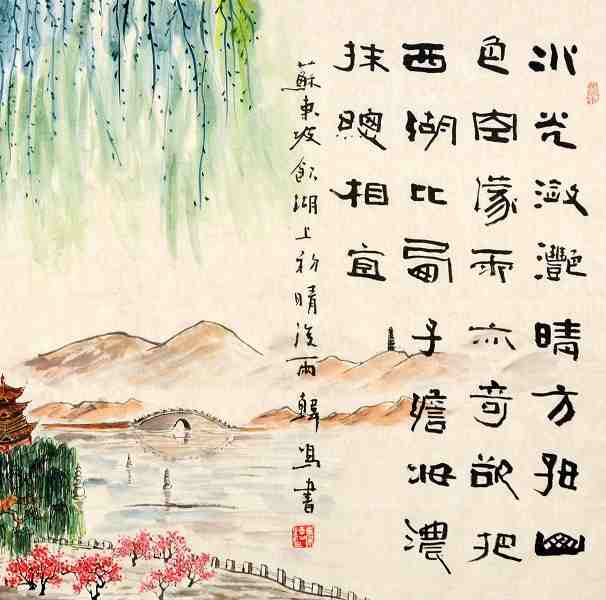 水光瀲灩晴方好山
色空濛雨亦奇欲把
西湖比西子澹妝濃
抹總相宜
蘇東坡飲湖上初晴後雨韓書